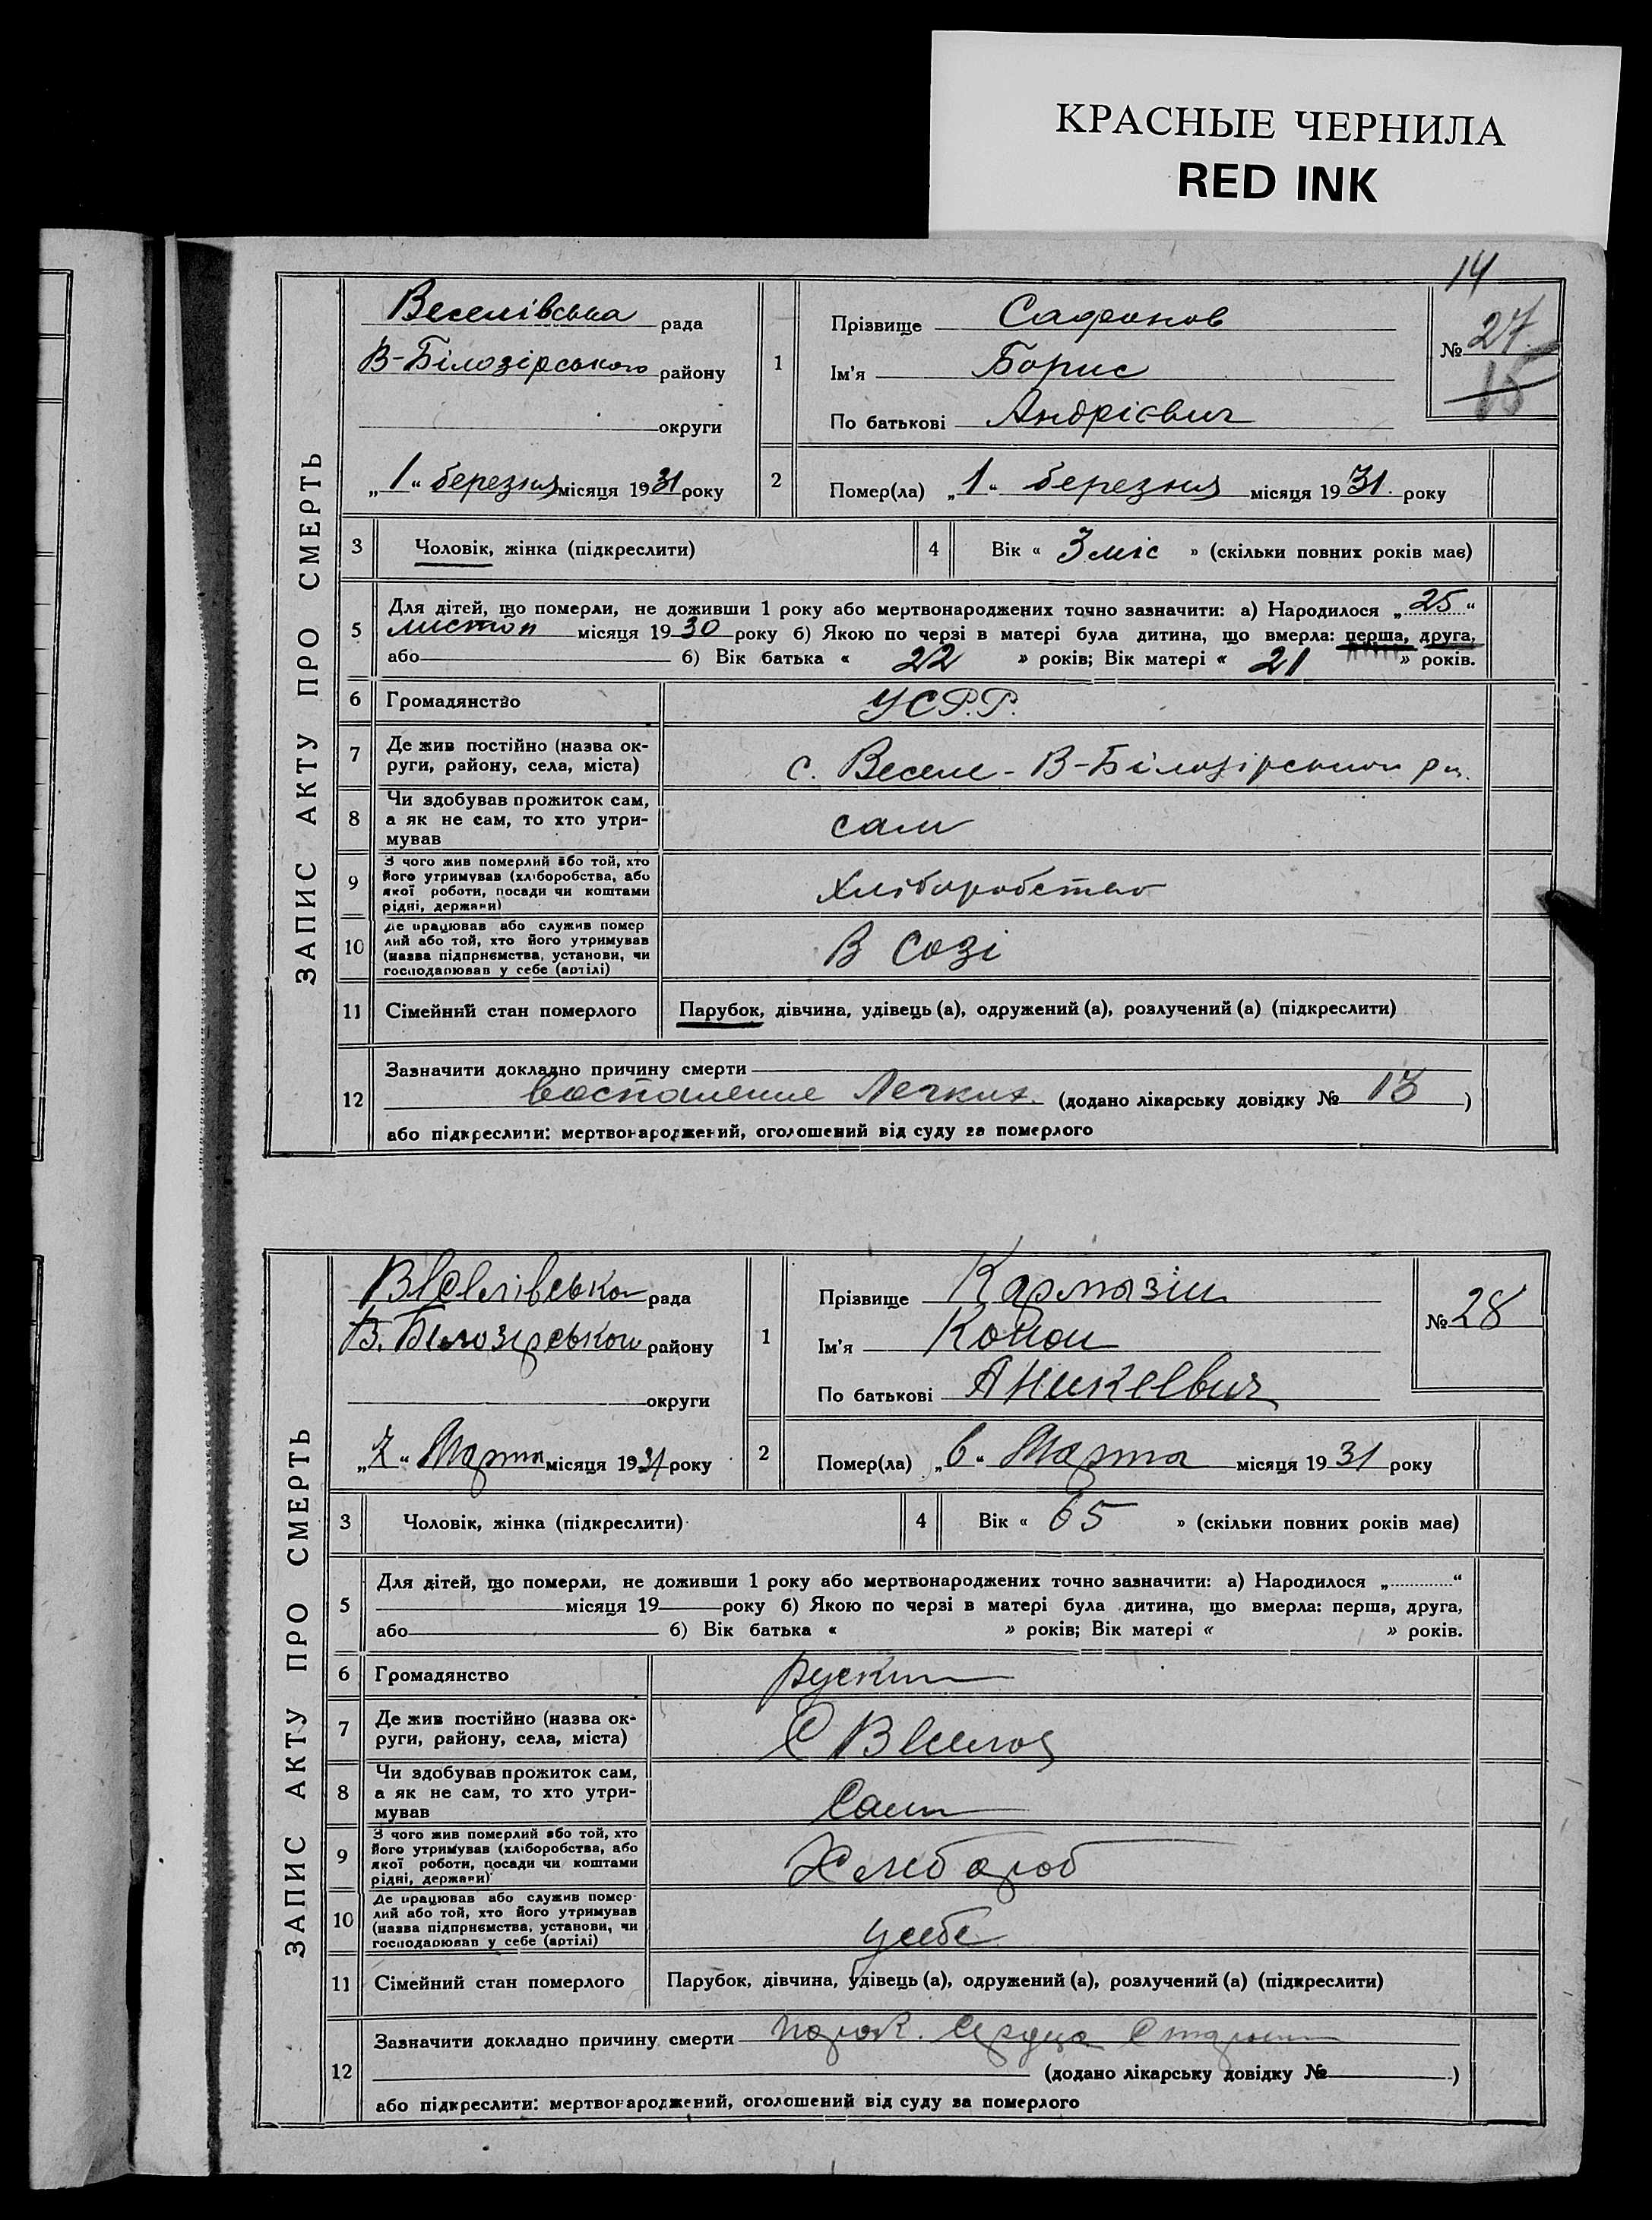 КРАСНЫЕ ЧЕРНИЛА
RED INK
14
ЗАПИС АКТУ ПРО СМЕРТЬ
Веселівська рада
В-Білозірського району
округи
„1“ березня місяця 1931 року
1
Прізвище Сафонов
Ім'я Борис
По батькові Андрієвич
№ 27
15
2
Помер(ла) „1“ березня місяця 1931. року
3
Чоловік, жінка (підкреслити)
4
Вік « 3 міс » (скільки повних років має)
5
Для дітей, що померли, не доживши 1 року або мертвонароджених точно зазначити: а) Народилося „25“
листоп місяця 1930 року б) Якою по черзі в матері була дитина, що вмерла: перша, друга,
або б) Вік батька « 22 » років; Вік матері « 21 » років.
6
Громадянство
УСР.Р.
7
Де жив постійно (назва ок-
руги, району, села, міста)
с. Веселе - В-Білозірського
8
Чи здобував прожиток сам,
а як не сам, то хто утри-
мував
сам
9
З чого жив померлий або той, хто
його утримував (хліборобства, або
якої роботи, посади чи коштами
рідні, держави)
Хліборобство
10
Де працював або служив помер
лий або той, хто його утримував
(назва підприємства, установи, чи
господарював у себе (артілі)
В Созі
11
Сімейний стан померлого
Парубок, дівчина, удівець (а), одружений (а), розлучений (а) (підкреслити)
12
Зазначити докладно причину смерти
Воспаление Легких. (додано лікарську довідку № 13 )
або підкреслити: мертвонароджений, оголошений від суду за померлого
ЗАПИС АКТУ ПРО СМЕРТЬ
рада
району
округи
„7“ Марта місяця 1931 року
1
Прізвище Кармазин
Ім'я Конон
По батькові Аникеевич
№ 28
2
Помер(ла) „6“ Марта місяця 1931 року
3
Чоловік, жінка (підкреслити)
4
Вік « 65 » (скільки повних років має)
5
Для дітей, що померли, не доживши 1 року або мертвонароджених точно зазначити: а) Народилося „ “
місяця 19 року б) Якою по черзі в матері була дитина, що вмерла: перша, друга,
або б) Вік батька « » років; Вік матері « » років.
6
Громадянство
7
Де жив постійно (назва ок-
руги, району, села, міста)
С
8
Чи здобував прожиток сам,
а як не сам, то хто утри-
мував
Сам
9
З чого жив померлий або той, хто
його утримував (хліборобства, або
якої роботи, посади чи коштами
рідні, держави)
Хлебороб
10
Де працював або служив помер-
лий або той, хто його утримував
(назва підприємства, установи, чи
господарював у себе (артілі)
у себе
11
Сімейний стан померлого
Парубок, дівчина, удівець (а), одружений (а), розлучений (а) (підкреслити)
12
Зазначити докладно причину смерти порок. Сердца
(додано лікарську довідку № )
або підкреслити: мертвонароджений, оголошений від суду за померлого